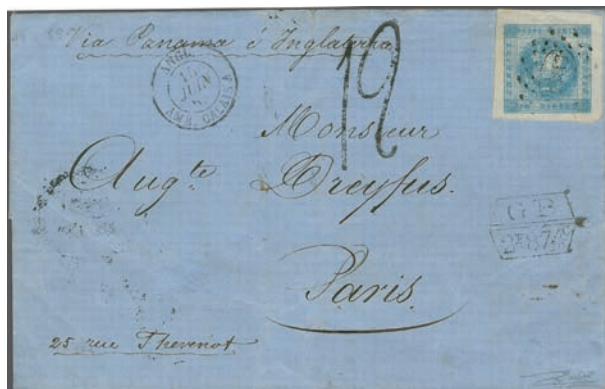 Via Panama é Inglaterra
ANGL.
JUIN
AMB. CALAIS
12
Monsieur
Augte Dreyfus.
GB
2F 87 4/10
Paris
25 rue Thevenot